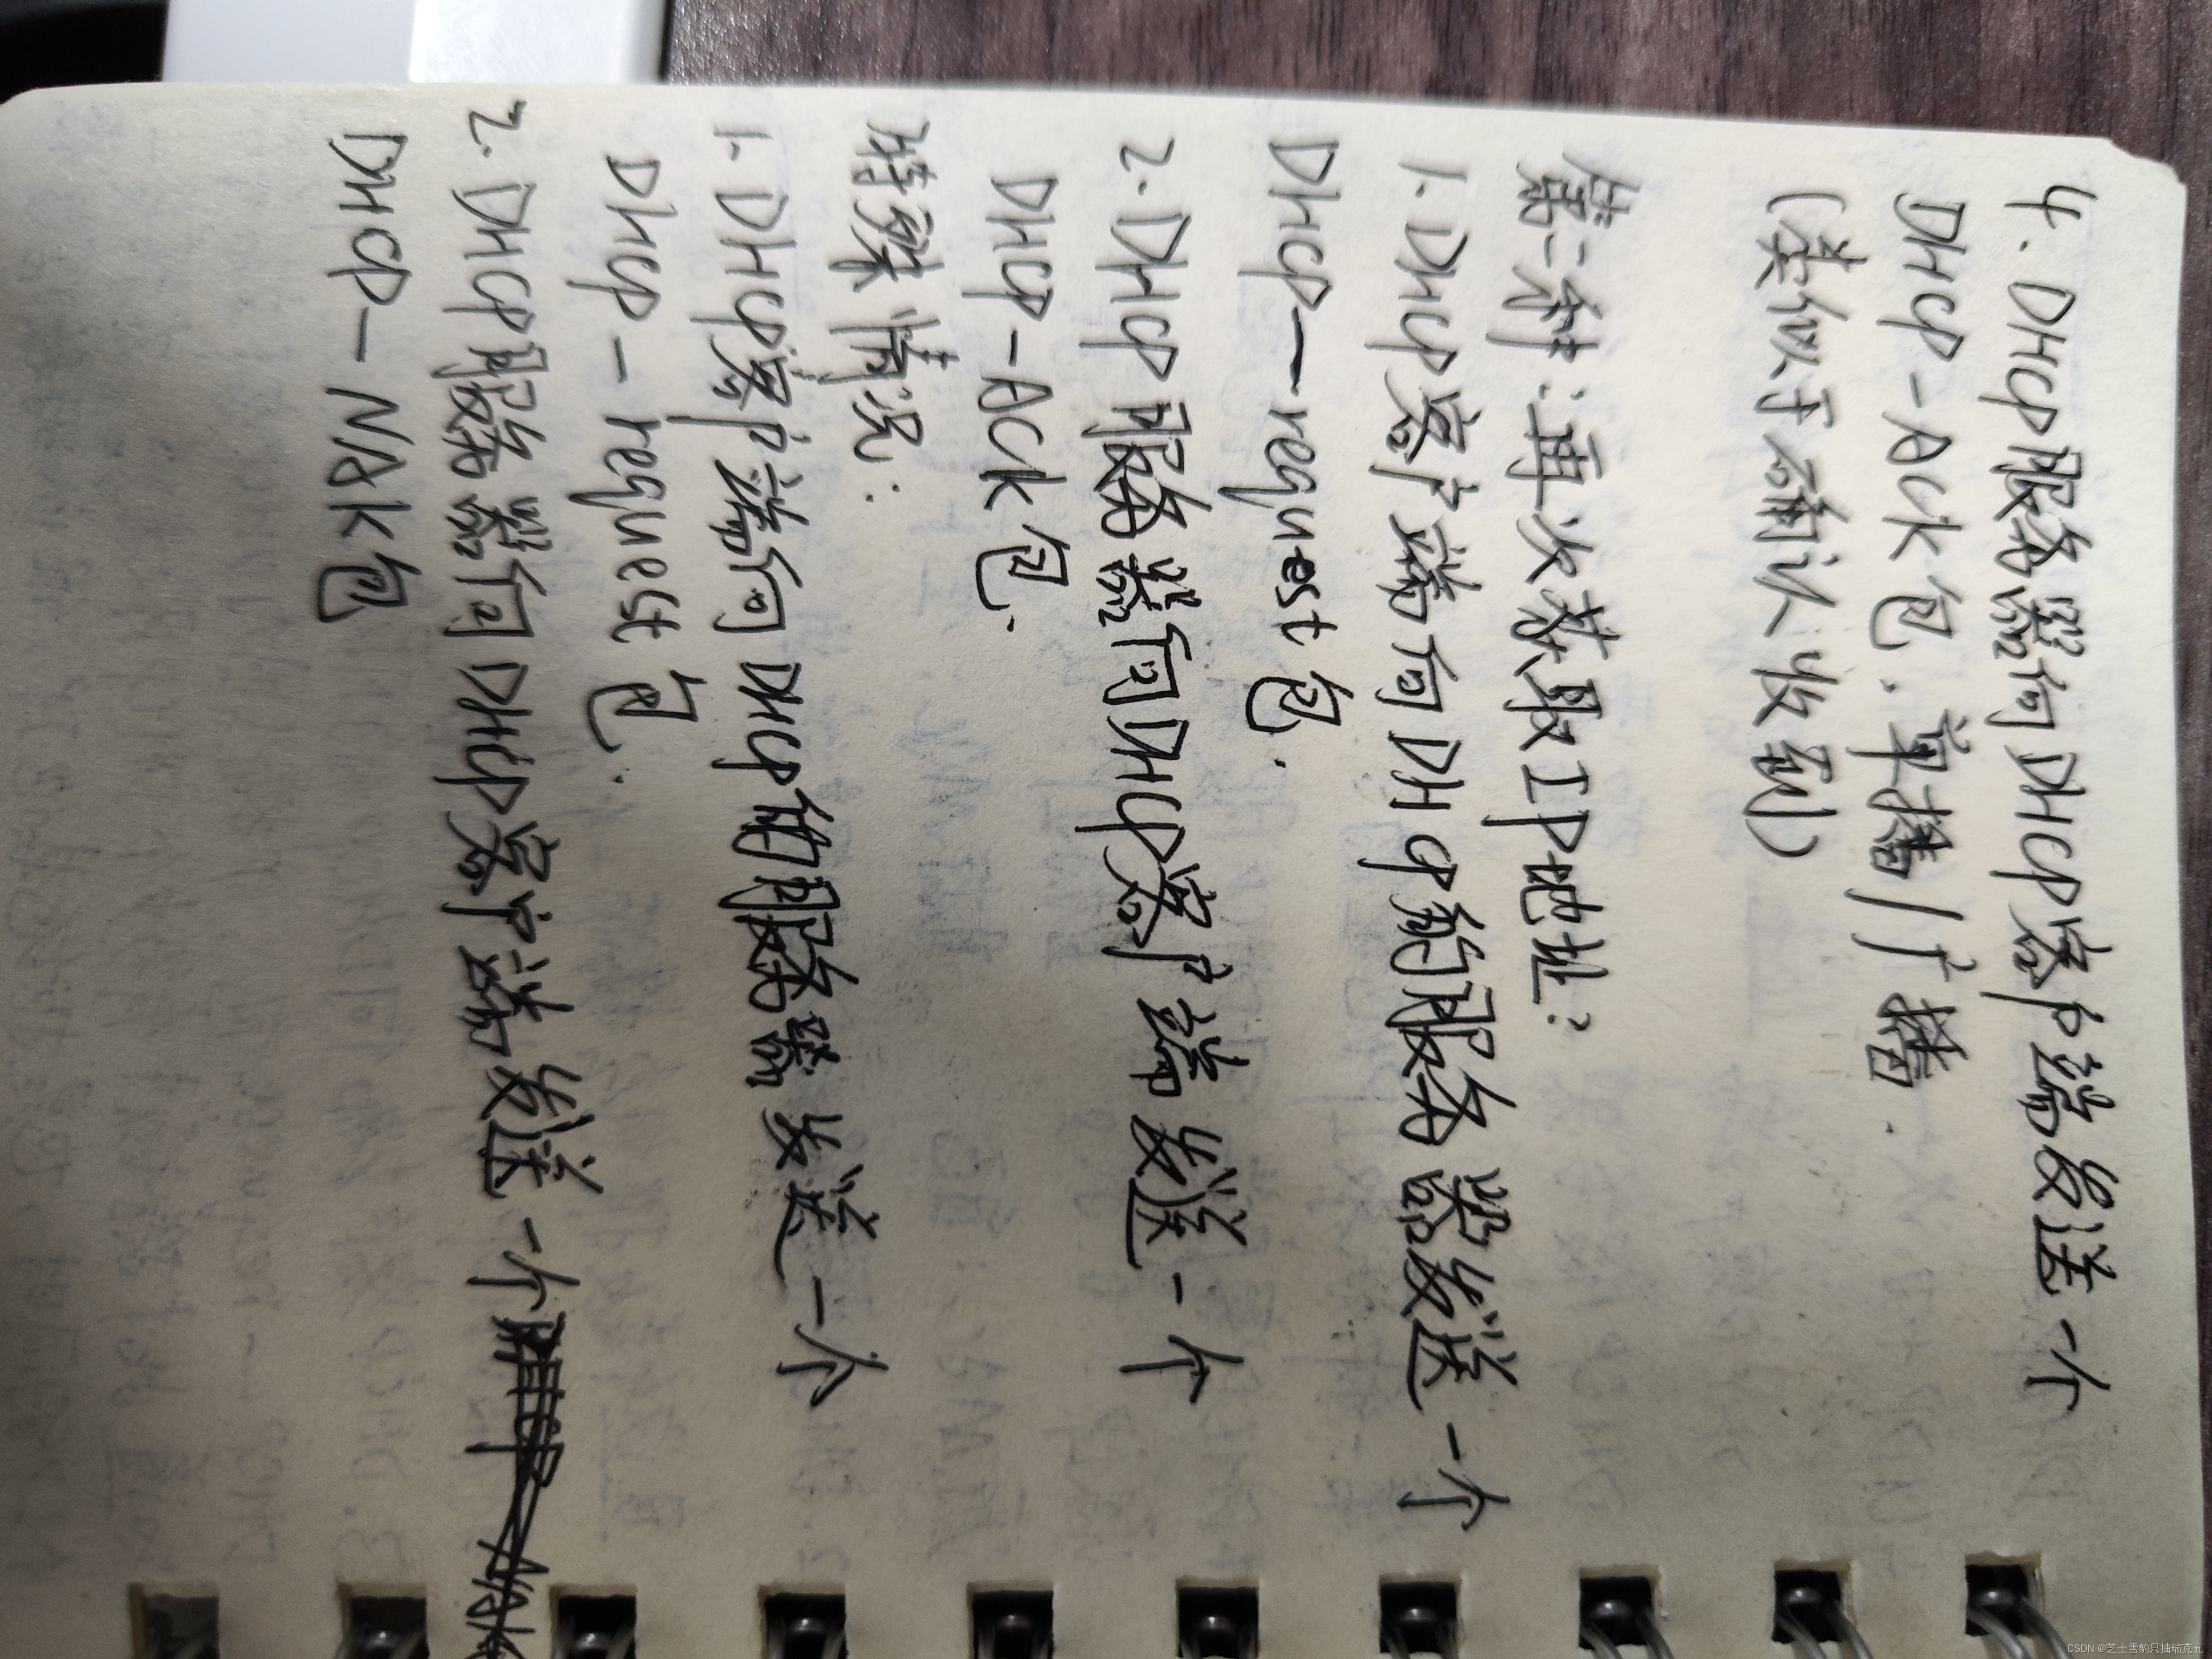 4. DHCP服务器向DHCP客户端发送一个
DHCP-ACK包. 单播/广播.
(类似于确认收到)
第二种:再次获取IP地址:
1. DHCP客户端向DHCP的服务器发送一个
DHCP-request包.
2. DHCP服务器向DHCP客户端发送一个
DHCP-ACK包.
特殊情况:
1. DHCP客户端向DHCP的服务器发送一个
DHCP-request包.
2. DHCP服务器向DHCP客户端发送一个
DHCP-NAK包
CSDN @芝士雪豹只抽瑞克五